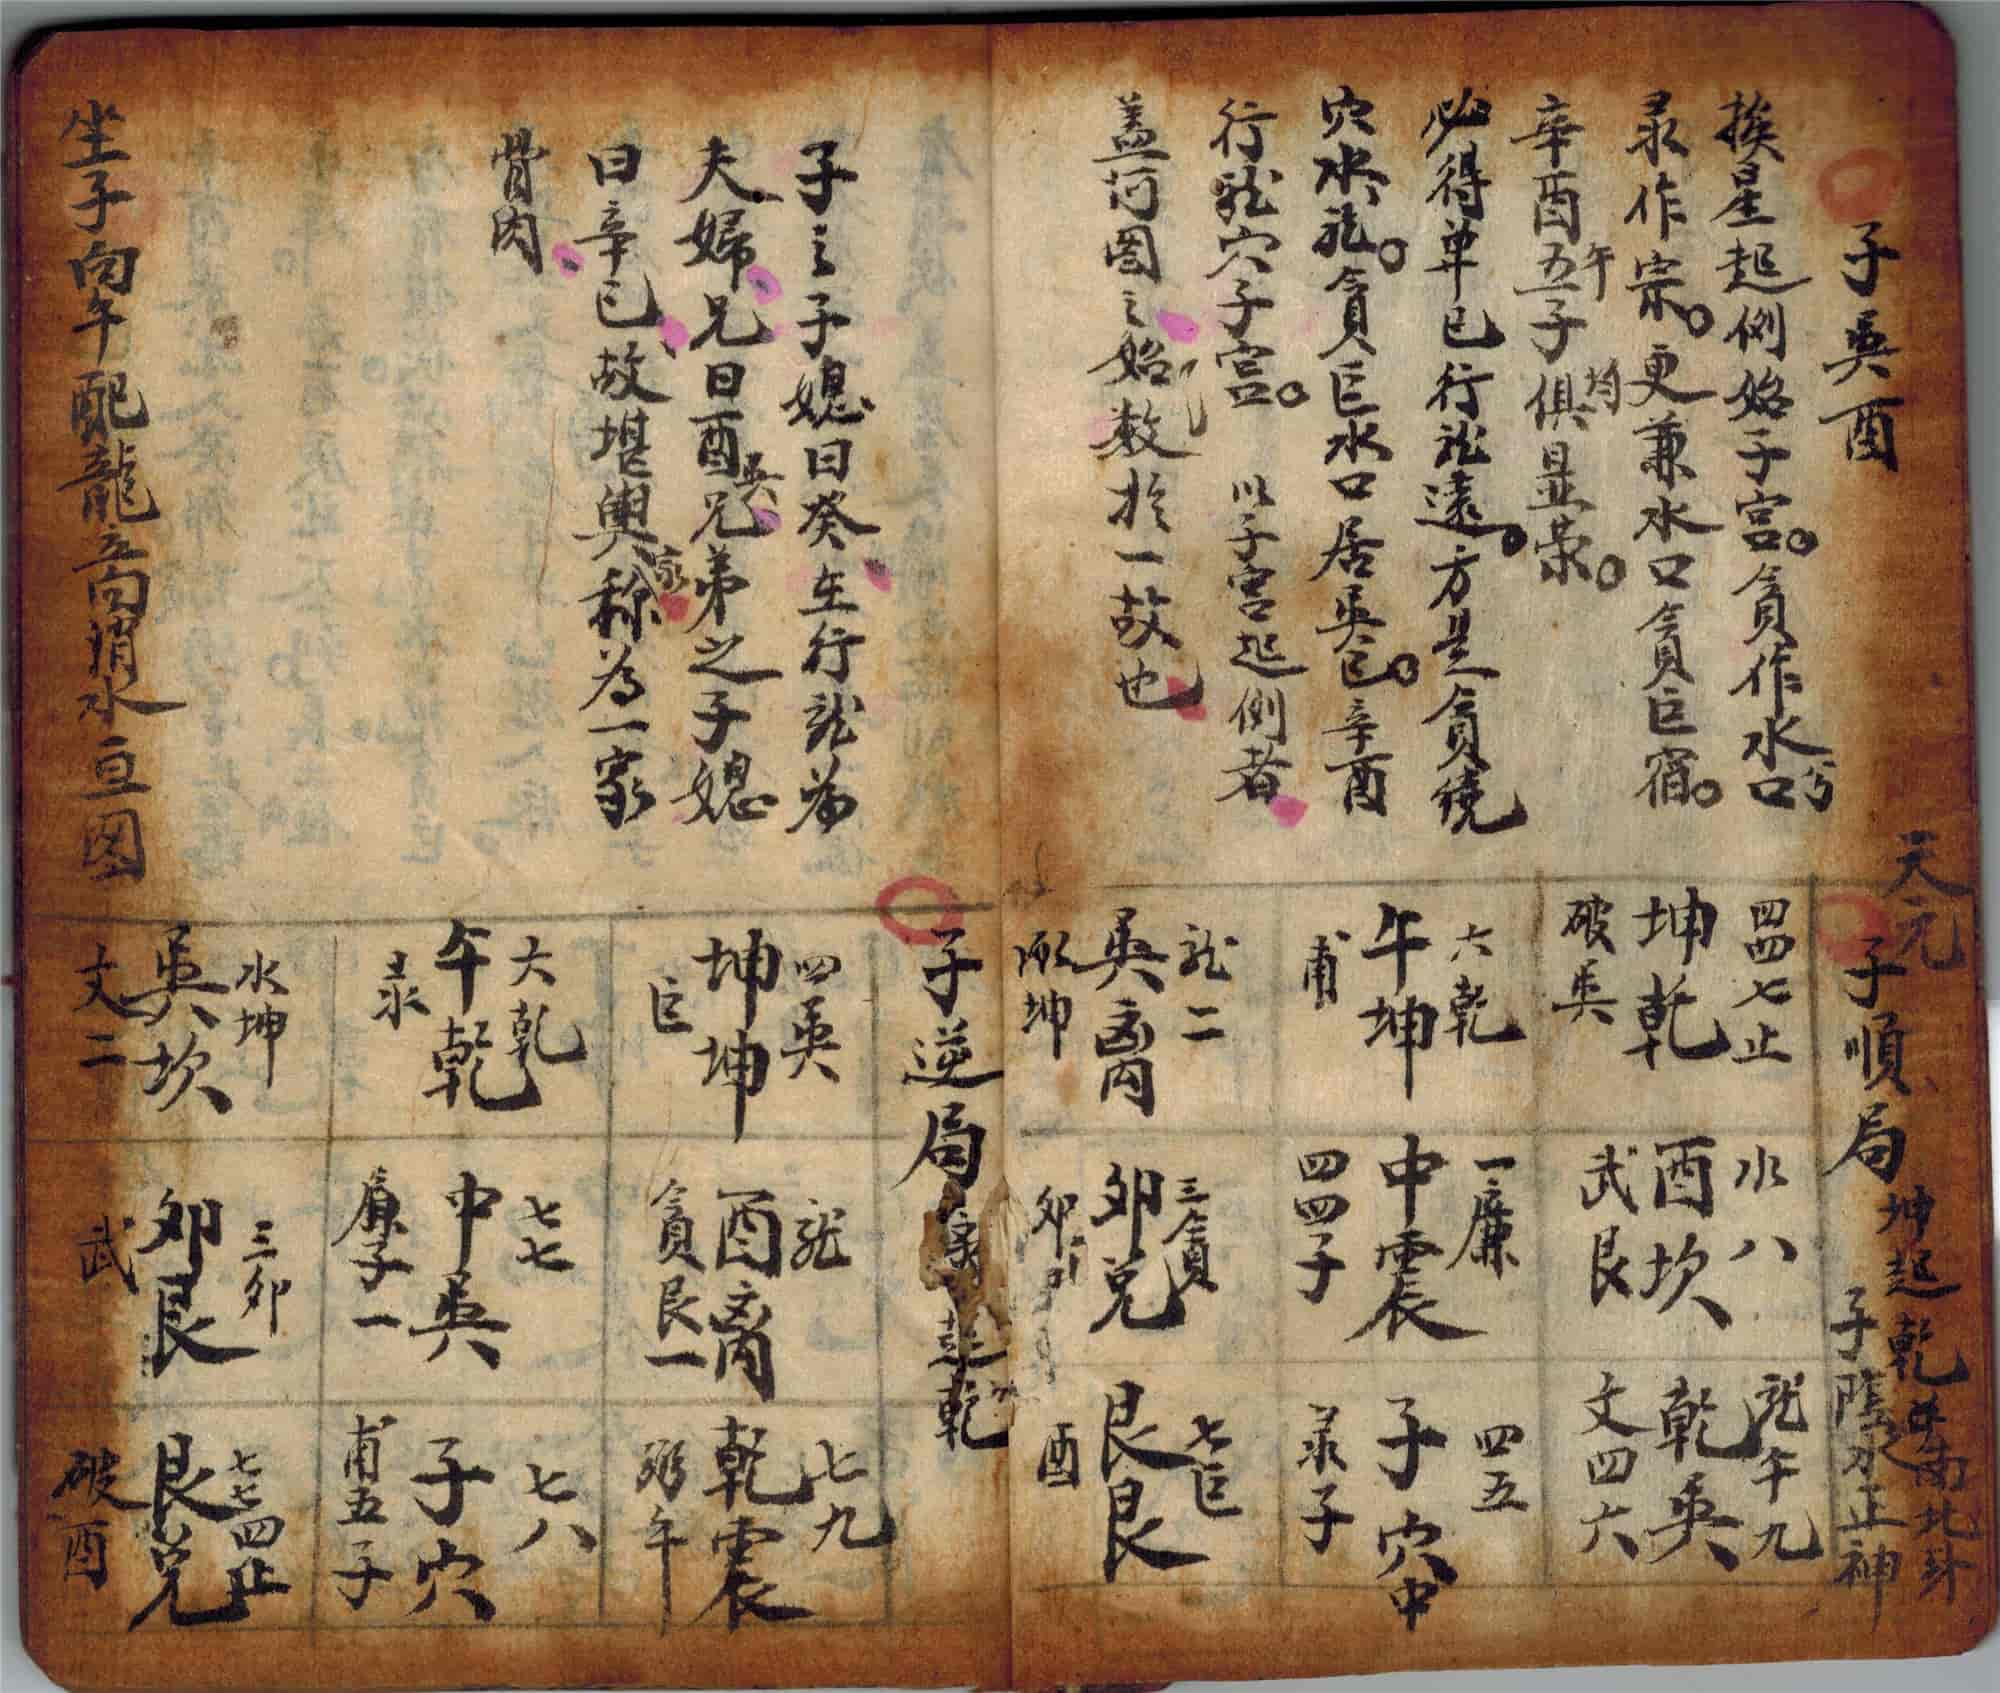 子巽酉
挨星起例始子宮貪作水口
彔作宗更兼水口貪巨宿
辛酉五子俱显荣
午
均
必得单巳行龍遠方是貪繞
穴水龍貪巨水口居巽巳辛酉
行龍穴子宮 以子宮起例者
盖河图之始数於一故也
天元
子順局
坤起乾
子陰
水正神
四四七止
坤乾
破巽
六乾
午坤
甫
龍二
巽离
坤
水八
酉坎
武艮
一廉
中震
四四子
三貪
卯兑
卯
龍午九
乾巽
文四六
四五
子穴中
彔子
七巨
艮艮
酉
子之子媳曰癸在行龍為
夫婦兄曰酉兄弟之子媳
巽
曰辛巳故堪輿稱為一家
家
骨肉
子逆局
起乾
四巽
坤坤
巨
六乾
午乾
彔
水坤
巽坎
文二
龍
酉离
貪艮一
七七
中巽
廉子一
三卯
卯艮
武
七九
乾震
弼午
七八
子穴
甫五子
七七四止
艮兑
破酉
坐子向午配龍立向消水亘图